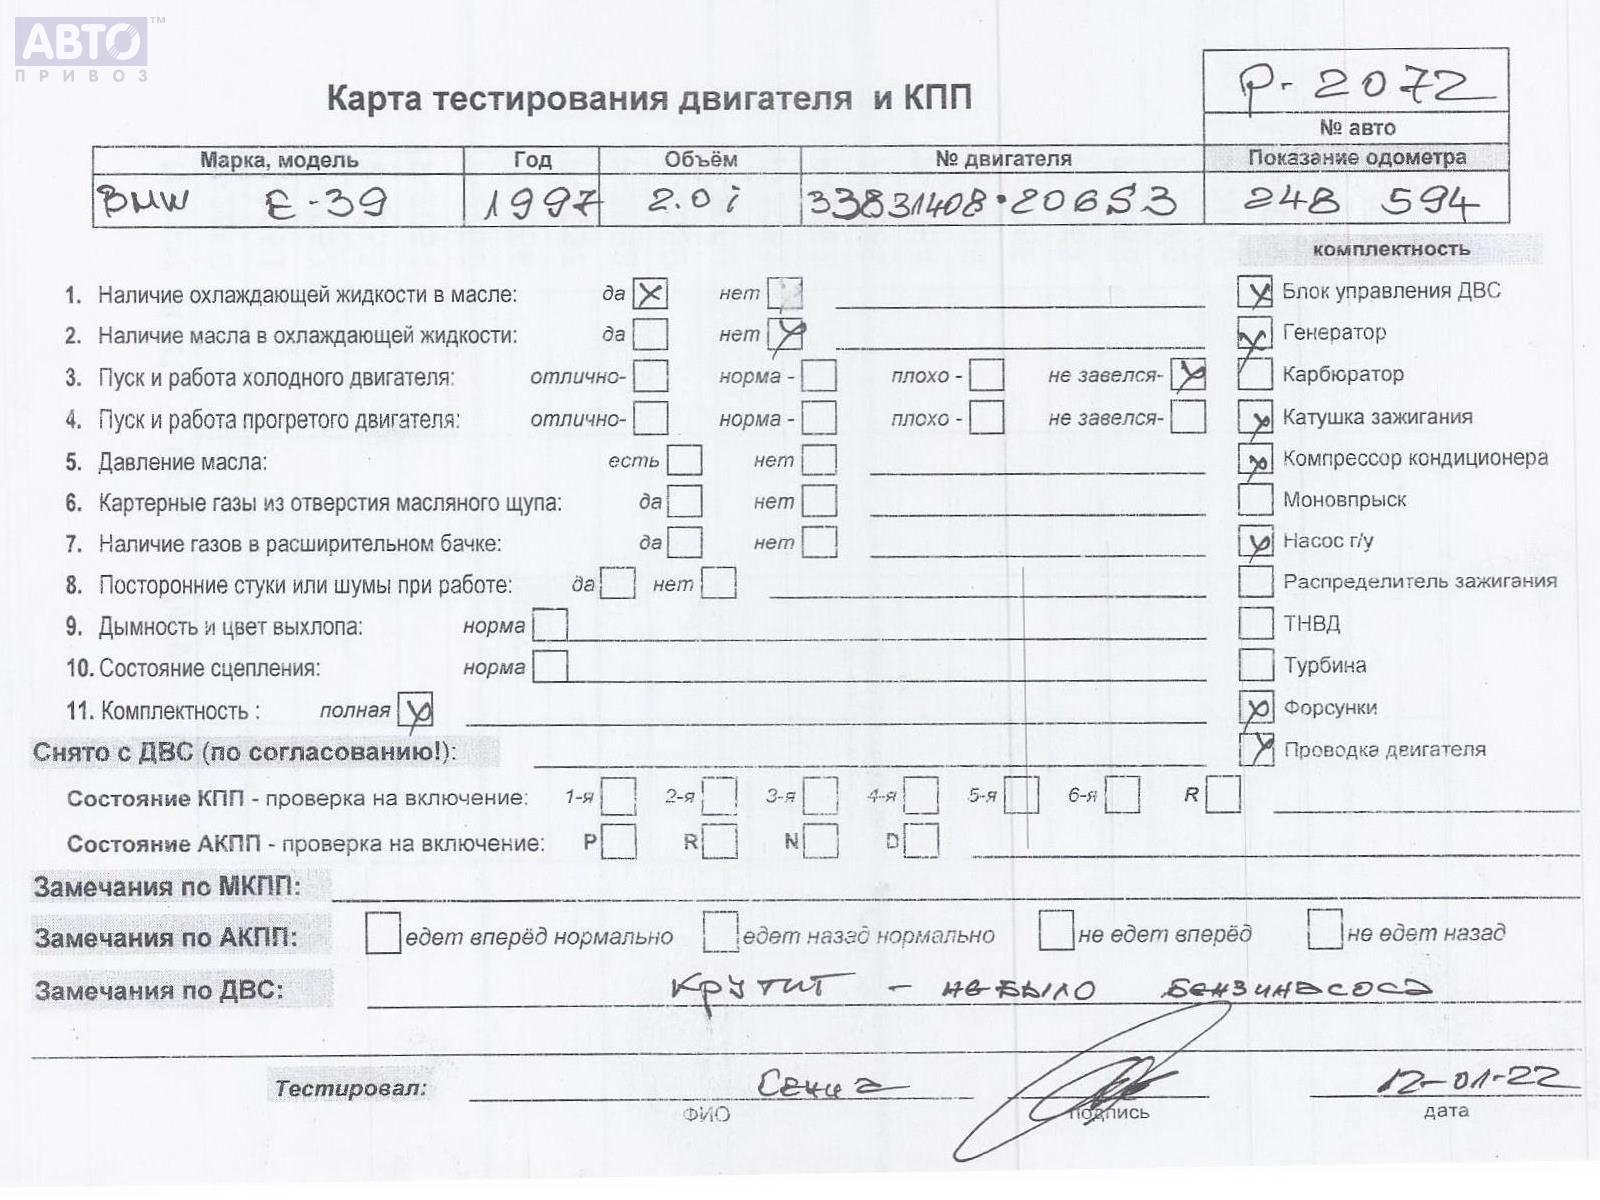 АВТО™
ПРИВОЗ
Карта тестирования двигателя и КПП
Р-2072
№ авто
Марка, модель Год Объём № двигателя Показание одометра
BMW E-39 1997 2.0i 33831408·206S3 248 594
комплектность
1. Наличие охлаждающей жидкости в масле: да нет
Блок управления ДВС
2. Наличие масла в охлаждающей жидкости: да нет
Генератор
3. Пуск и работа холодного двигателя: отлично- норма - плохо - не завелся-
Карбюратор
4. Пуск и работа прогретого двигателя: отлично- норма - плохо - не завелся-
Катушка зажигания
5. Давление масла: есть нет
Компрессор кондиционера
6. Картерные газы из отверстия масляного щупа: да нет
Моновпрыск
7. Наличие газов в расширительном бачке: да нет
Насос г/у
8. Посторонние стуки или шумы при работе: да нет
Распределитель зажигания
9. Дымность и цвет выхлопа: норма
ТНВД
10. Состояние сцепления: норма
Турбина
11. Комплектность : полная
Форсунки
Снято с ДВС (по согласованию!):
Проводка двигателя
Состояние КПП - проверка на включение: 1-я 2-я 3-я 4-я 5-я 6-я R
Состояние АКПП - проверка на включение: P R N D
Замечания по МКПП:
Замечания по АКПП: едет вперёд нормально едет назад нормально не едет вперёд не едет назад
Замечания по ДВС: крутит - не было бензинасоса
Тестировал: 12-01-22
ФИО подпись дата